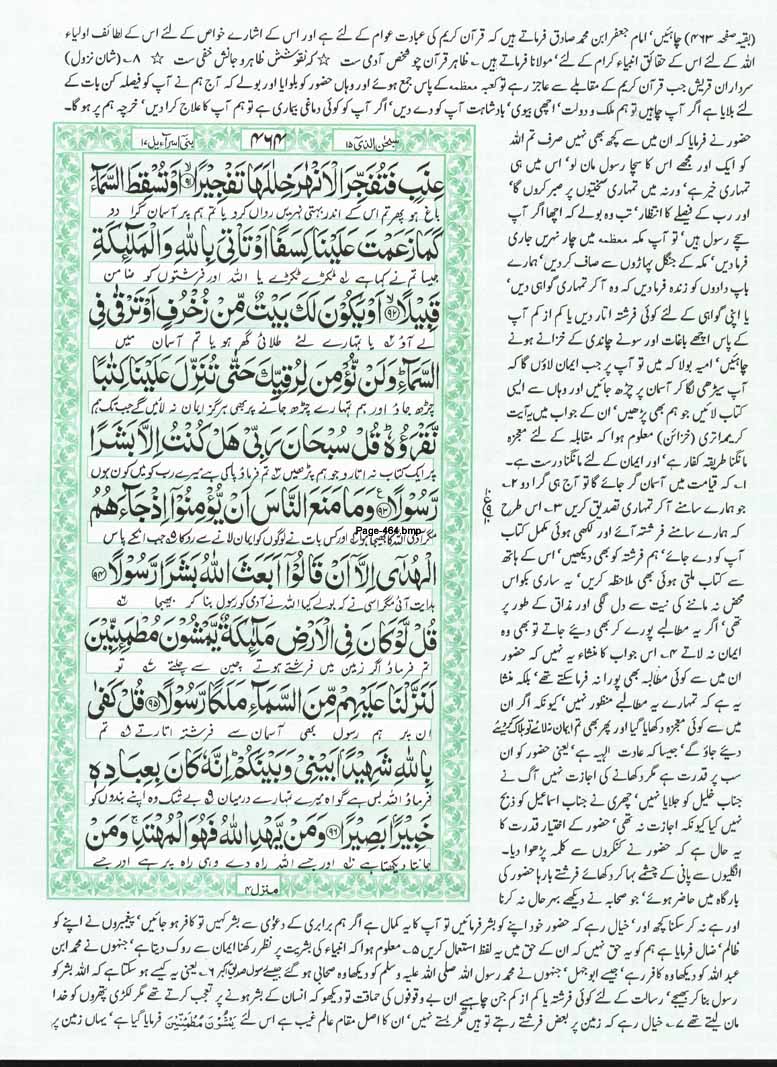 (بقیہ صفحہ ۴۶۳) چاہئیں' امام جعفر ابن محمد صادق فرماتے ہیں کہ قرآن کریم کی عبادت عوام کے لئے ہے اور اس کے اشارے خواص کے لئے اس کے لطائف اولیاء
اللہ کے لئے اس کے حقائق انبیاء کرام کے لئے' مولانا فرماتے ہیں ؎ ظاہر قرآں چو شخص آدمی ست ☆ کہ نقوشش ظاہر و جانش خفی ست ☆ ۸۔ (شان نزول)
سرداران قریش جب قرآن کریم کے مقابلے سے عاجز رہے تو کعبہ معظمہ کے پاس جمع ہوئے اور وہاں حضور کو بلوایا اور بولے کہ آج ہم نے آپ کو فیصلہ کن بات کے
لئے بلایا ہے اگر آپ چاہیں تو ہم ملک و دولت' اچھی بیوی' بادشاہت آپ کو دے دیں' اگر آپ کو کوئی دماغی بیماری ہے تو ہم آپ کا علاج کرا دیں' خرچہ ہم پر ہو گا۔
حضور نے فرمایا کہ ان میں سے کچھ بھی نہیں صرف تم اللہ
کو ایک اور مجھے اس کا سچا رسول مان لو' اس میں ہی
تمہاری خیر ہے' ورنہ میں تمہاری سختیوں پر صبر کروں گا'
اور رب کے فیصلے کا انتظار' تب وہ بولے کہ اچھا اگر آپ
سچے رسول ہیں' تو آپ مکہ معظمہ میں چار نہریں جاری
فرما دیں' مکہ کے جنگل پہاڑوں سے صاف کر دیں' ہمارے
باپ دادوں کو زندہ فرما دیں کہ وہ آ کر تمہاری گواہی دیں'
یا اپنی گواہی کے لئے کوئی فرشتہ اتار دیں یا کم از کم آپ
کے پاس اچھے باغات اور سونے چاندی کے خزانے ہونے
چاہئیں' امیہ بولا کہ میں تو آپ پر جب ایمان لاؤں گا کہ
آپ سیڑھی لگا کر آسمان پر چڑھ جائیں اور وہاں سے ایسی
کتاب لائیں جو ہم بھی پڑھیں' ان کے جواب میں یہ آیت
کریمہ اتری (خزائن) معلوم ہوا کہ مقابلہ کے لئے معجزہ
مانگنا طریقہ کفار ہے' اور ایمان کے لئے مانگنا درست ہے۔
۱۔ کہ قیامت میں آسمان گر جائے گا تو آج ہی گرا دو ۲۔
جو ہمارے سامنے آ کر تمہاری تصدیق کریں ۳۔ اس طرح
کہ ہمارے سامنے فرشتہ آئے اور لکھی ہوئی مکمل کتاب
آپ کو دے جائے' ہم فرشتہ کو بھی دیکھیں' اس کے ہاتھ
سے کتاب ملتی ہوئی بھی ملاحظہ کریں' یہ ساری بکواس
محض نہ ماننے کی نیت سے دل لگی اور مذاق کے طور پر
تھی' اگر یہ مطالبے پورے کر بھی دیئے جاتے تو بھی وہ
ایمان نہ لاتے ۴۔ اس جواب کا منشاء یہ نہیں کہ حضور
ان میں سے کوئی مطالبہ بھی پورا نہ فرما سکتے تھے' بلکہ منشا
یہ ہے کہ تمہارے یہ مطالبے منظور نہیں' کیونکہ اگر ان
میں سے کوئی معجزہ دکھایا گیا اور پھر بھی تم ایمان نہ لائے تو ہلاک کر دیئے
دیئے جاؤ گے' جیسا کہ عادت الٰہیہ ہے' یعنی حضور کو ان
سب پر قدرت ہے مگر دکھانے کی اجازت نہیں آگ نے
جناب خلیل کو جلایا نہیں' چھری نے جناب اسماعیل کو ذبح
نہیں کیا کیونکہ اجازت نہ تھی' حضور کے اختیار قدرت کا
یہ حال ہے کہ حضور نے کنکروں سے کلمہ پڑھوا دیا۔
انگلیوں سے پانی کے چشمے بہا کر دکھائے فرشتے بارہا حضور کی
بارگاہ میں حاضر ہوئے' جو صحابہ نے دیکھے بہرحال نہ کرنا
سبحٰن الذی ۱۵
۴۶۴
بنی اسراءیل ۱۷
عِنَبٍ فَتُفَجِّرَ الْاَنْهٰرَ خِلٰلَهَا تَفْجِیْرًا ۙ﴿۹۱﴾ اَوْ تُسْقِطَ السَّمَآءَ
باغ ہو پھر تم اس کے اندر بہتی نہریں رواں کرو یا تم ہم پر آسمان گرا دو
كَمَا زَعَمْتَ عَلَیْنَا كِسَفًا اَوْ تَاْتِیَ بِاللّٰهِ وَ الْمَلٰٓىِٕكَةِ
جیسا تم نے کہا ہے ۱ ٹکڑے ٹکڑے یا اللہ اور فرشتوں کو ضامن
قَبِیْلًا ۙ﴿۹۲﴾ اَوْ یَكُوْنَ لَكَ بَیْتٌ مِّنْ زُخْرُفٍ اَوْ تَرْقٰی فِی
لے آؤ ۲ یا تمہارے لئے طلائی گھر ہو یا تم آسمان میں
السَّمَآءِ ؕ وَ لَنْ نُّؤْمِنَ لِرُقِیِّكَ حَتّٰی تُنَزِّلَ عَلَیْنَا كِتٰبًا
چڑھ جاؤ اور ہم تمہارے چڑھ جانے پر بھی ہرگز ایمان نہ لائیں گے جب تک ہم
نَّقْرَؤُهٗ ؕ قُلْ سُبْحَانَ رَبِّیْ هَلْ كُنْتُ اِلَّا بَشَرًا
پر ایک کتاب نہ اتارو جو ہم پڑھیں ۳ تم فرماؤ پاکی ہے میرے رب کو میں کون ہوں
رَّسُوْلًا ﴿۹۳﴾ وَ مَا مَنَعَ النَّاسَ اَنْ یُّؤْمِنُوْۤا اِذْ جَآءَهُمُ
Page-464.bmp
مگر آدمی اللہ کا بھیجا ہوا ۴ اور کس بات نے لوگوں کو ایمان لانے سے روکا ۵ جب انکے پاس
الْهُدٰۤی اِلَّاۤ اَنْ قَالُوْۤا اَبَعَثَ اللّٰهُ بَشَرًا رَّسُوْلًا ﴿۹۴﴾
ہدایت آئی مگر اسی نے کہ بولے کیا اللہ نے آدمی کو رسول بنا کر بھیجا ۶
قُلْ لَّوْ كَانَ فِی الْاَرْضِ مَلٰٓىِٕكَةٌ یَّمْشُوْنَ مُطْمَىِٕنِّیْنَ
تم فرماؤ اگر زمین میں فرشتے ہوتے چین سے چلتے ۷ تو
لَنَزَّلْنَا عَلَیْهِمْ مِّنَ السَّمَآءِ مَلَكًا رَّسُوْلًا ﴿۹۵﴾ قُلْ كَفٰی
ان پر ہم رسول بھی آسمان سے فرشتہ اتارتے ۸ تم
بِاللّٰهِ شَهِیْدًۢا بَیْنِیْ وَ بَیْنَكُمْ ؕ اِنَّهٗ كَانَ بِعِبَادِهٖ
فرماؤ اللہ بس ہے گواہ میرے تمہارے درمیان ۹ بے شک وہ اپنے بندوں کو
خَبِیْرًۢا بَصِیْرًا ﴿۹۶﴾ وَ مَنْ یَّهْدِ اللّٰهُ فَهُوَ الْمُهْتَدِ ۚ وَ مَنْ
جانتا دیکھتا ہے اور جسے اللہ راہ دے وہی راہ پر ہے اور جسے
منزل ۴
اور ہے نہ کر سکنا کچھ اور' خیال رہے کہ حضور خود اپنے کو بشر فرمائیں تو آپ کا یہ کمال ہے اگر ہم برابری کے دعوٰی سے بشر کہیں تو کافر ہو جائیں' پیغمبروں نے اپنے کو
ظالم' ضال فرمایا ہے ہم کو یہ حق نہیں کہ ان کے حق میں یہ لفظ استعمال کریں ۵۔ معلوم ہوا کہ انبیاء کی بشریت پر نظر رکھنا ایمان سے روک دیتا ہے' جنہوں نے محمد ابن
عبد اللہ کو دیکھا وہ کافر رہے' جیسے ابو جہل' جنہوں نے محمد رسول اللہ صلی اللہ علیہ و سلم کو دیکھا وہ صحابی ہو گئے جیسے سول صدیق اکبر ۶۔ یعنی یہ کیسے ہو سکتا ہے کہ اللہ بشر کو
رسول بنا کر بھیجے' رسالت کے لئے کوئی فرشتہ یا کم از کم جن چاہیے ان بے وقوفوں کی حماقت تو دیکھو کہ انسان کے بشر ہونے پر تعجب کرتے تھے مگر لکڑی پتھروں کو خدا
مان لیتے تھے ۷۔ خیال رہے کہ زمین پر بعض فرشتے رہتے تو ہیں مگر بستے نہیں' ان کا اصل مقام عالم غیب ہے اس لئے یَمْشُوْنَ مُطْمَئِنِّیْنَ فرمایا گیا ہے' یہاں زمین پر